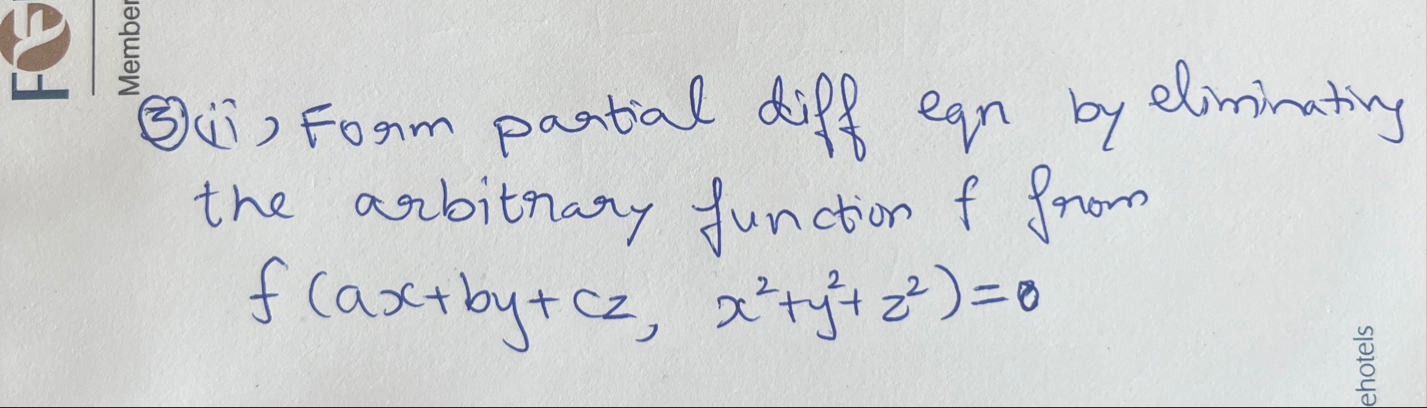 Member
③(ii) Form partial diff eqn by eliminating
the arbitrary function f from
f(ax+by+cz, x²+y²+z²)=0
ehotels